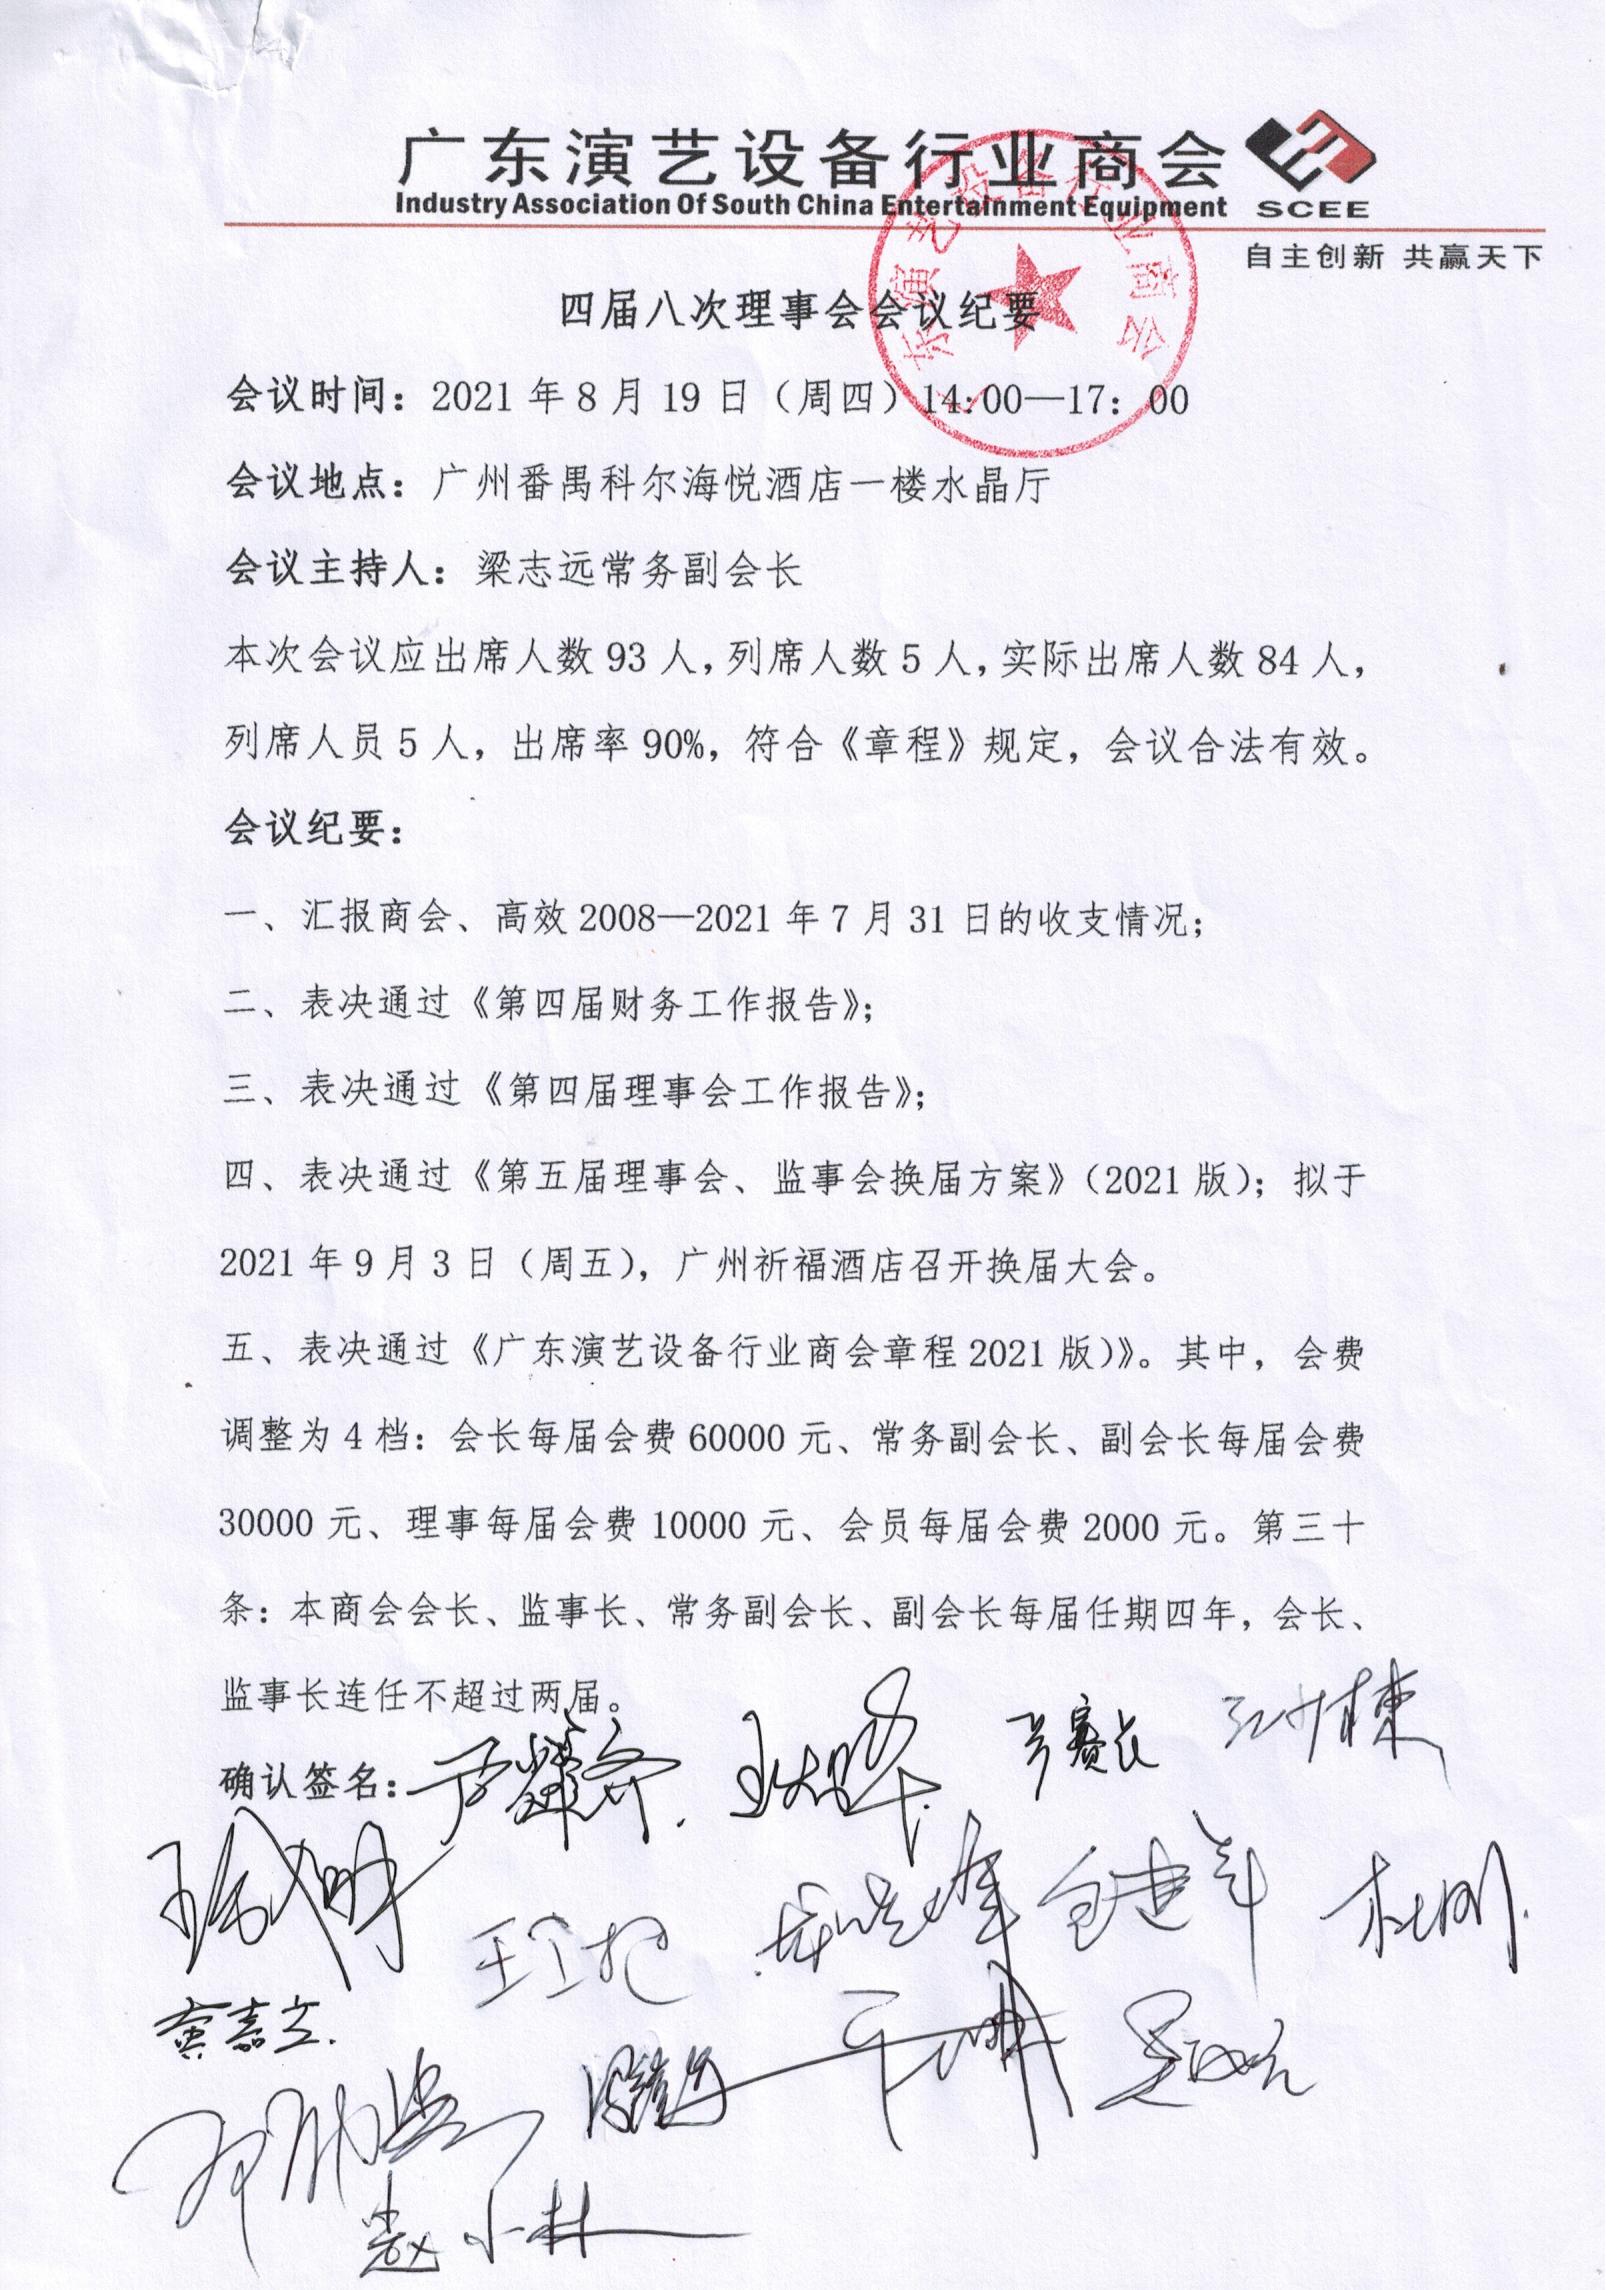 广东演艺设备行业商会
Industry Association Of South China Entertainment Equipment
SCEE
自主创新 共赢天下
东演艺设备行业商会
四届八次理事会会议纪要
会议时间：2021 年 8 月 19 日（周四）14:00—17：00
会议地点：广州番禺科尔海悦酒店一楼水晶厅
会议主持人：梁志远常务副会长
本次会议应出席人数 93 人，列席人数 5 人，实际出席人数 84 人，
列席人员 5 人，出席率 90%，符合《章程》规定，会议合法有效。
会议纪要：
一、汇报商会、高效 2008—2021 年 7 月 31 日的收支情况；
二、表决通过《第四届财务工作报告》；
三、表决通过《第四届理事会工作报告》；
四、表决通过《第五届理事会、监事会换届方案》（2021 版）；拟于
2021 年 9 月 3 日（周五），广州祈福酒店召开换届大会。
五、表决通过《广东演艺设备行业商会章程 2021 版）》。其中，会费
调整为 4 档：会长每届会费 60000 元、常务副会长、副会长每届会费
30000 元、理事每届会费 10000 元、会员每届会费 2000 元。第三十
条：本商会会长、监事长、常务副会长、副会长每届任期四年，会长、
监事长连任不超过两届。
确认签名：
杜刚
黄嘉立
赵小林